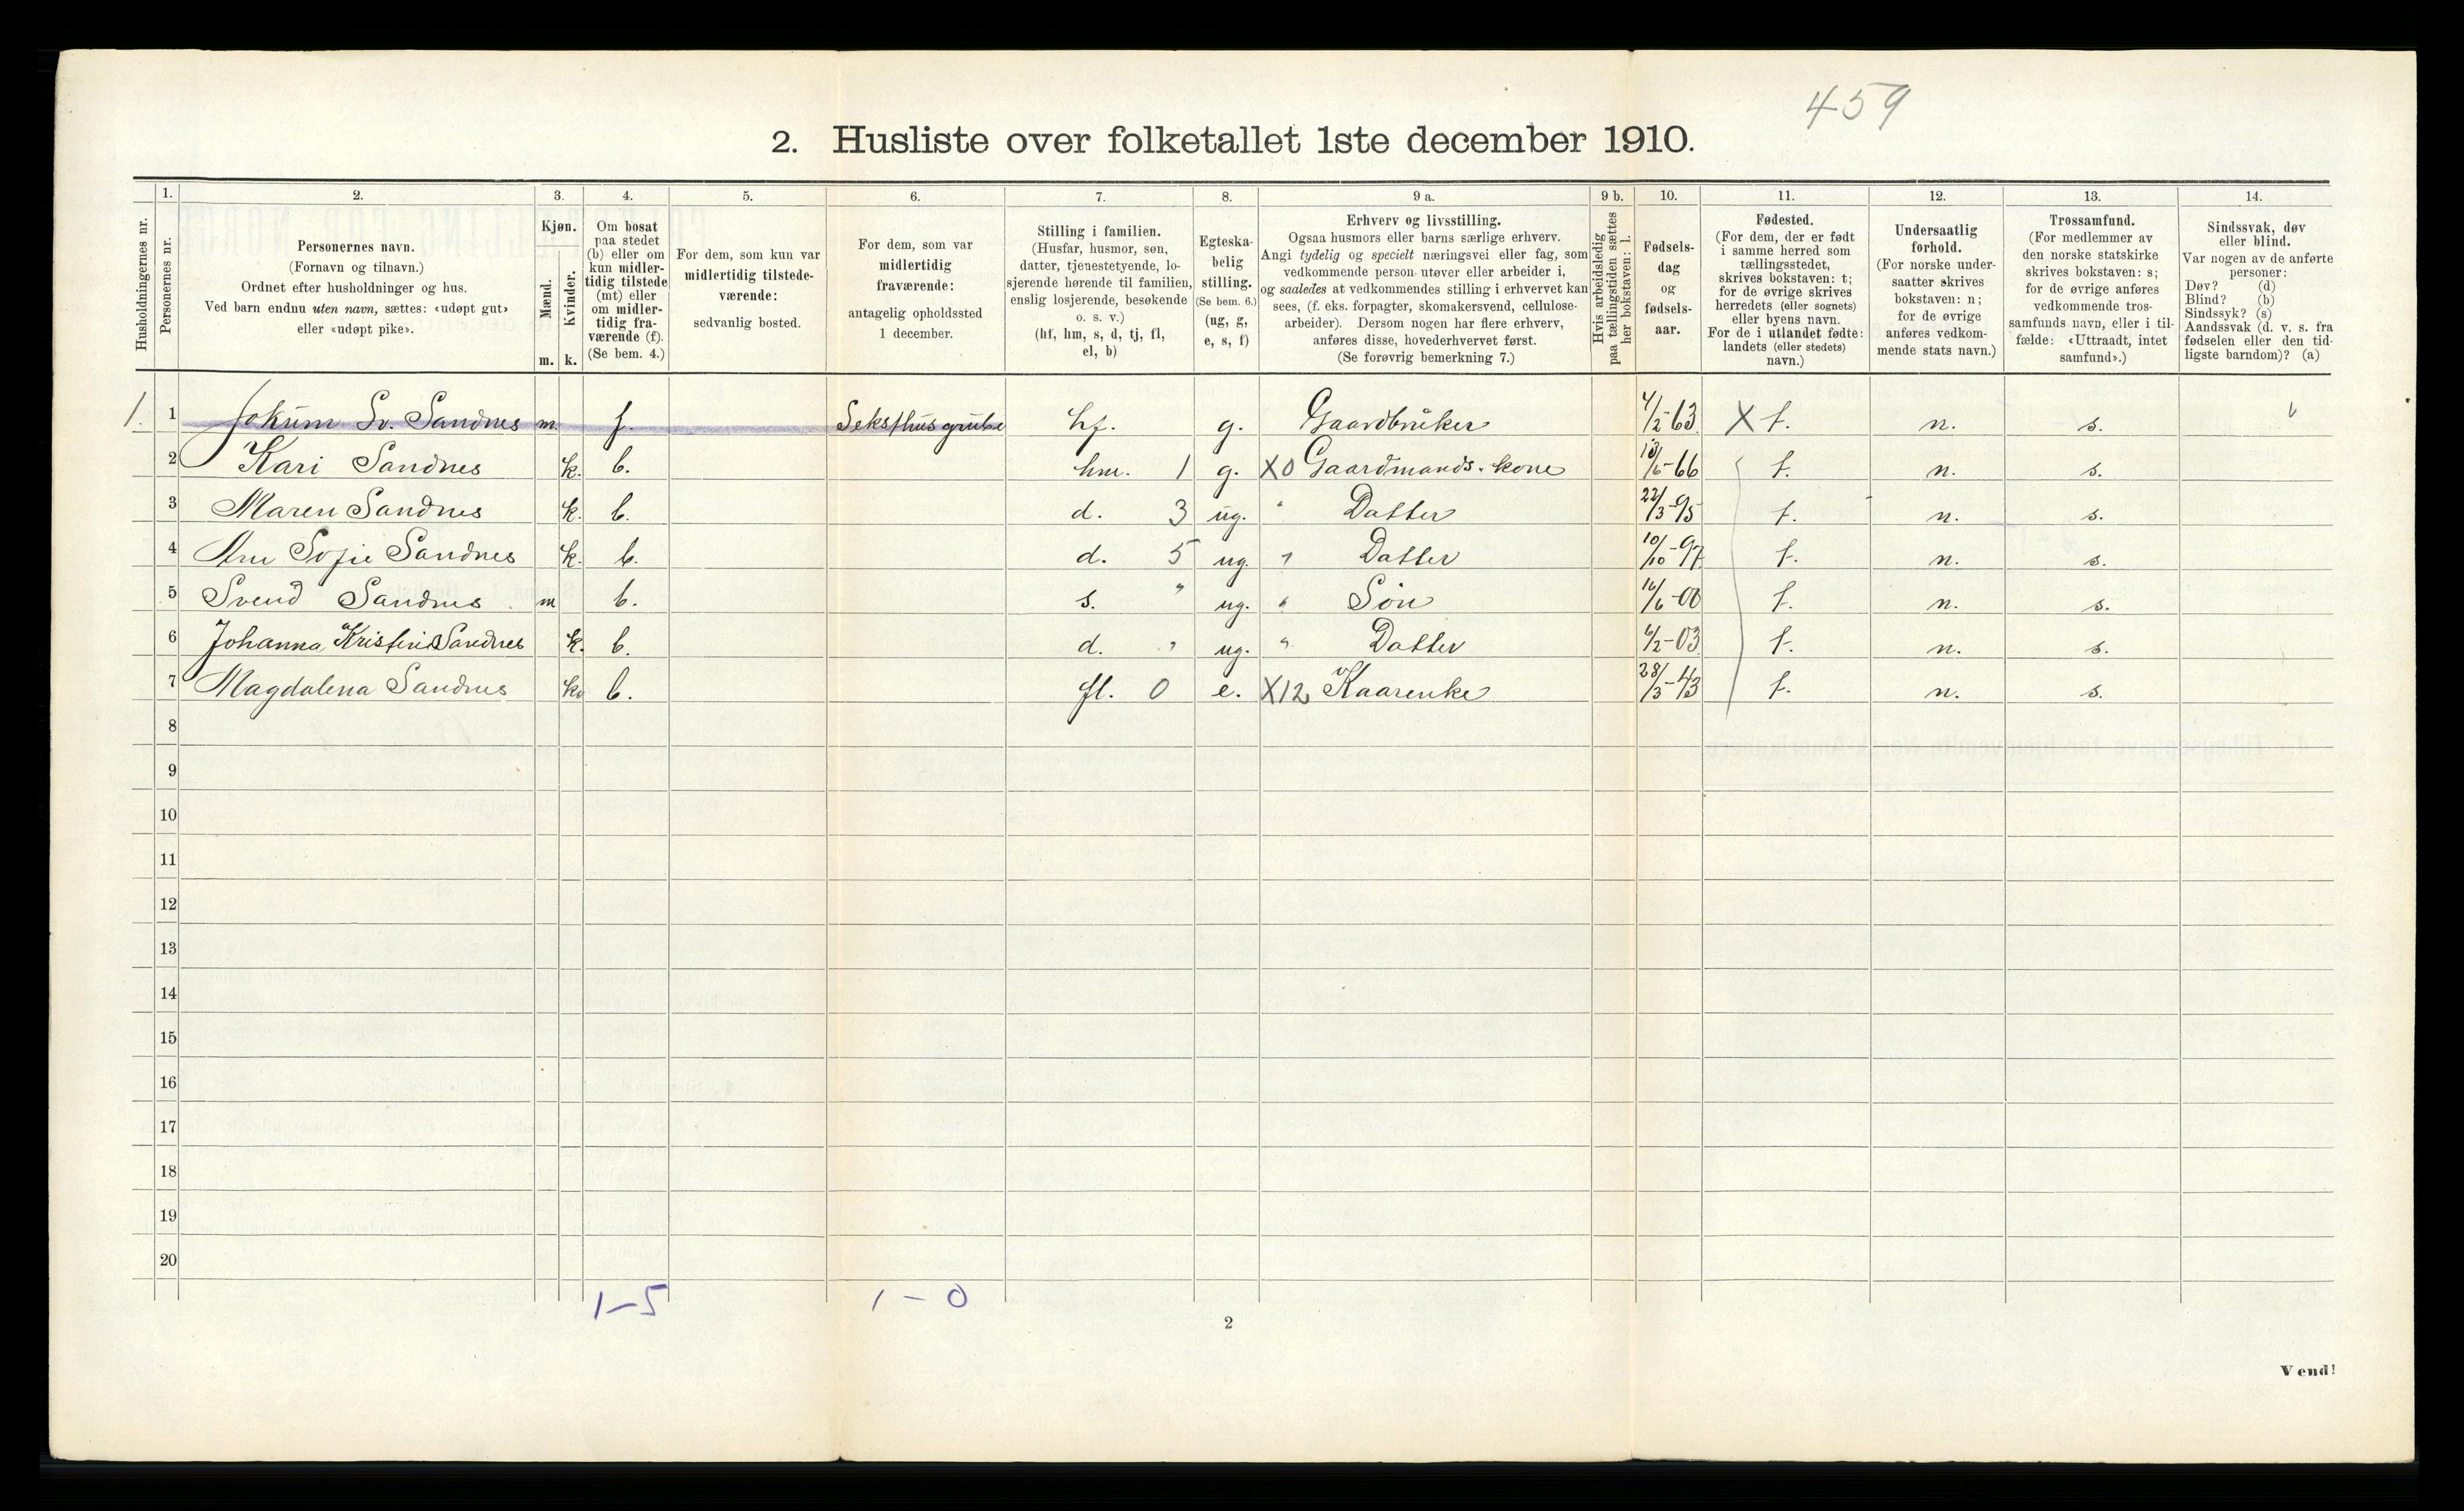 459
2. Husliste over folketallet 1ste december 1910.
Husholdningernes nr.
1.
Personernes nr.
2.
Personernes navn.
(Fornavn og tilnavn.)
Ordnet efter husholdninger og hus.
Ved barn endnu uten navn, sættes: «udøpt gut»
eller «udøpt pike».
3.
Kjøn.
Mænd.
Kvinder.
m. k.
4.
Om bosat
paa stedet
(b) eller om
kun midler-
tidig tilstede
(mt) eller
om midler-
tidig fra-
værende (f).
(Se bem. 4.)
5.
For dem, som kun var
midlertidig tilstede-
værende:
sedvanlig bosted.
6.
For dem, som var
midlertidig
fraværende:
antagelig opholdssted
1 december.
7.
Stilling i familien.
(Husfar, husmor, søn,
datter, tjenestetyende, lo-
sjerende hørende til familien,
enslig losjerende, besøkende
o. s. v.)
(hf, hm, s, d, tj, fl,
el, b)
8.
Egteska-
belig
stilling.
(Se bem. 6.)
(ug, g,
e, s, f)
9 a.
Erhverv og livsstilling.
Ogsaa husmors eller barns særlige erhverv.
Angi tydelig og specielt næringsvei eller fag, som
vedkommende person utøver eller arbeider i,
og saaledes at vedkommendes stilling i erhvervet kan
sees, (f. eks. forpagter, skomakersvend, cellulose-
arbeider). Dersom nogen har flere erhverv,
anføres disse, hovederhvervet først.
(Se forøvrig bemerkning 7.)
9 b.
Hvis arbeidsledig
paa tællingstiden sættes
her bokstaven: l.
10.
Fødsels-
dag
og
fødsels-
aar.
11.
Fødested.
(For dem, der er født
i samme herred som
tællingsstedet,
skrives bokstaven: t;
for de øvrige skrives
herredets (eller sognets)
eller byens navn.
For de i utlandet fødte:
landets (eller stedets)
navn.)
12.
Undersaatlig
forhold.
(For norske under-
saatter skrives
bokstaven: n;
for de øvrige
anføres vedkom-
mende stats navn.)
13.
Trossamfund.
(For medlemmer av
den norske statskirke
skrives bokstaven: s;
for de øvrige anføres
vedkommende tros-
samfunds navn, eller i til-
fælde: «Uttraadt, intet
samfund».)
14.
Sindssvak, døv
eller blind.
Var nogen av de anførte
personer:
Døv? (d)
Blind? (b)
Sindssyk? (s)
Aandssvak (d. v. s. fra
fødselen eller den tid-
ligste barndom)? (a)
1. 1 Jokum Sv. Sandnes m. f. hf. g. Gaardbruker 4/2-63 X t. n. s.
2 Kari Sandnes k. b. hm. 1 g. X0 Gaardmands-kone t. n. s.
3 Maren Sandnes k. b. d. 3 ug. " Datter 22/3-95 t. n. s.
4 Ane Sofie Sandnes k. b. d. 5 ug. " Datter 10/10-97 t. n. s.
5 Svend Sandnes m b. s. " ug. " Søn 16/6-00 t. n. s.
6 Johanna Kristine Sandnes k. b. d. " ug. " Datter 6/2-03 t. n. s.
7 Magdalena Sandnes kv b. fl. 0 e. X12 Kaarenke 28/3-43 t. n. s.
8
9
10
11
12
13
14
15
16
17
18
19
20
1-5 1-0
2
Vend!